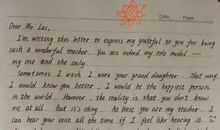 Date Page
Dear Mr Las,
I'm writing this letter to express my grateful to you for being
such a wonderful teacher. You are indeed my role model —
my one and the only.
Sometimes I wish I were your grand daughter. That way,
I would know you better, I would be the happiest person
in the world. However, the reality is that you don't know
me at all. But it's okay. At least you are my teacher. I
can hear your voice all the time if I feel like hearing it.